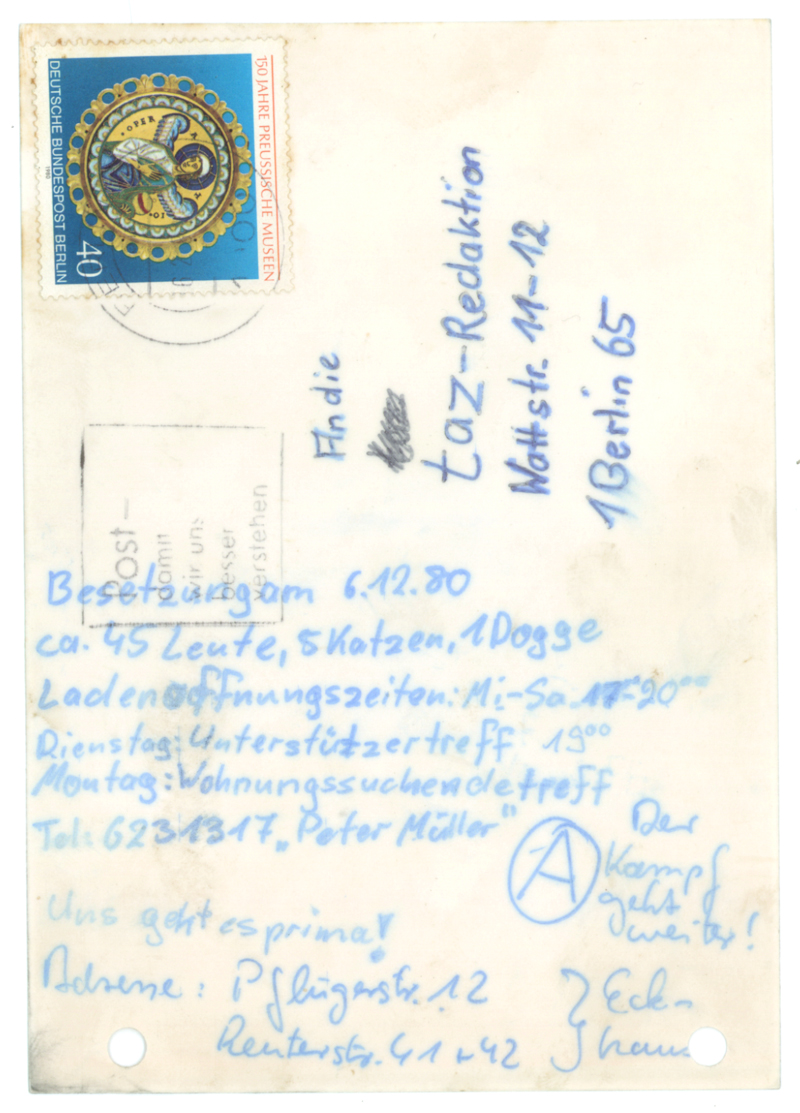 150 JAHRE PREUSSISCHE MUSEEN
DEUTSCHE BUNDESPOST BERLIN
40
1980
Post-
damit
wir uns
besser
verstehen
An die
taz-Redaktion
Wattstr. 11-12
1 Berlin 65
Besetzung am 6.12.80
ca. 45 Leute, 8 Katzen, 1 Dogge
Ladenöffnungszeiten: Mi.-Sa. 17-20°°
Dienstag: Unterstützertreff 19°°
Montag: Wohnungssuchendetreff
Tel: 6231317 „Peter Müller"
A Der
Kampf
geht
weiter!
Uns geht es prima!
Adresse: Pflügerstr. 12
Reuterstr. 41+42
} Eck-
haus